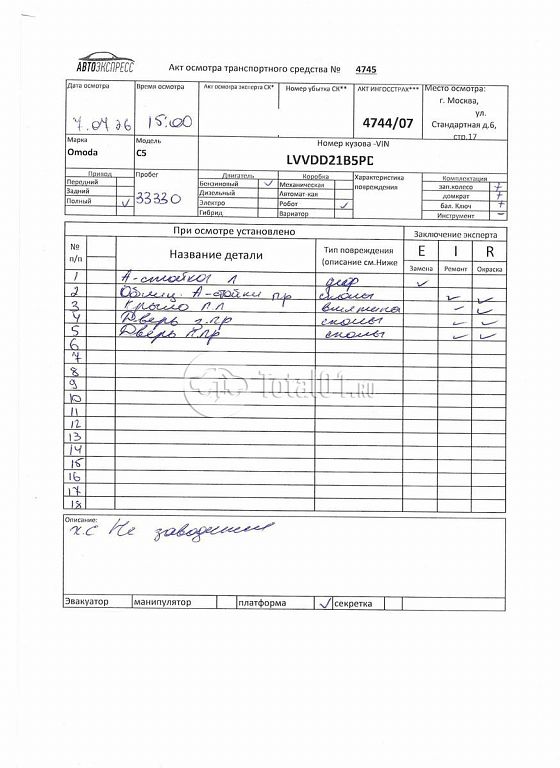 АВТОЭКСПРЕСС
Акт осмотра транспортного средства № 4745
Дата осмотра
Время осмотра
Акт осмотра эксперта СК*
Номер убытка СК**
АКТ ИНГОССТРАХ***
Место осмотра:
7.04 26
15:00
4744/07
г. Москва,
ул.
Стандартная д.6,
стр.17
Марка
Модель
Номер кузова -VIN
Omoda
C5
LVVDD21B5PD
Привод
Пробег
Двигатель
Коробка
Характеристика
повреждения
Комплектация
Передний
Бензиновый ✓
Механическая
зап.колесо +
Задний
33330
Дизельный
Автомат-кая
домкрат +
Полный ✓
Электро
Робот ✓
бал. Ключ +
Гибрид
Вариатор
Инструмент –
При осмотре установлено
Заключение эксперта
№
п/п
Название детали
Тип повреждения
(описание см.Ниже
E I R
Замена Ремонт Окраска
1 А-стойка Л деф ✓
2 Облиц. А-стойки пр сколы ✓ ✓
3 Крыло п.л вмятина ✓ ✓
4 Дверь з.пр сколы ✓ ✓
5 Дверь п.пр сколы ✓ ✓
6
7
8
9
Total01.RU
10
11
12
13
14
15
16
17
18
Описание:
х.с Не заводится
Эвакуатор манипулятор платформа ✓ секретка